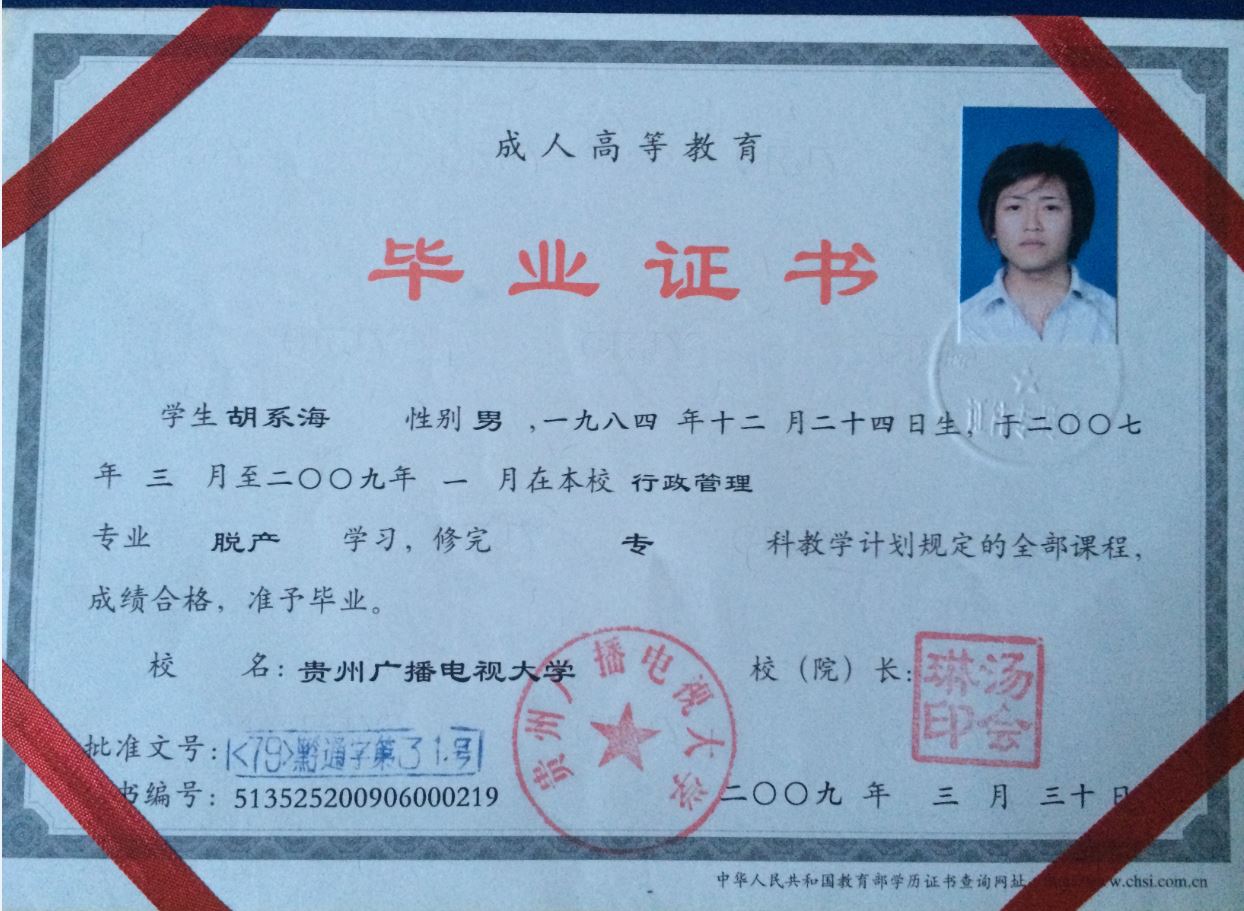 成人高等教育
毕业证书
学生 胡系海 性别 男 ,一九八四 年十二 月二十四日生, 于二〇〇七
年 三 月至二〇〇九年 一 月在本校 行政管理
专业 脱产 学习, 修完 专 科教学计划规定的全部课程,
成绩合格, 准予毕业。
校 名: 贵州广播电视大学 校 (院) 长:
汤会琳印
贵州广播电视大学
批准文号: <79>黔通字第31号
书编号: 513525200906000219 二〇〇九 年 三 月 三十 日
中华人民共和国教育部学历证书查询网址: w.chsi.com.cn